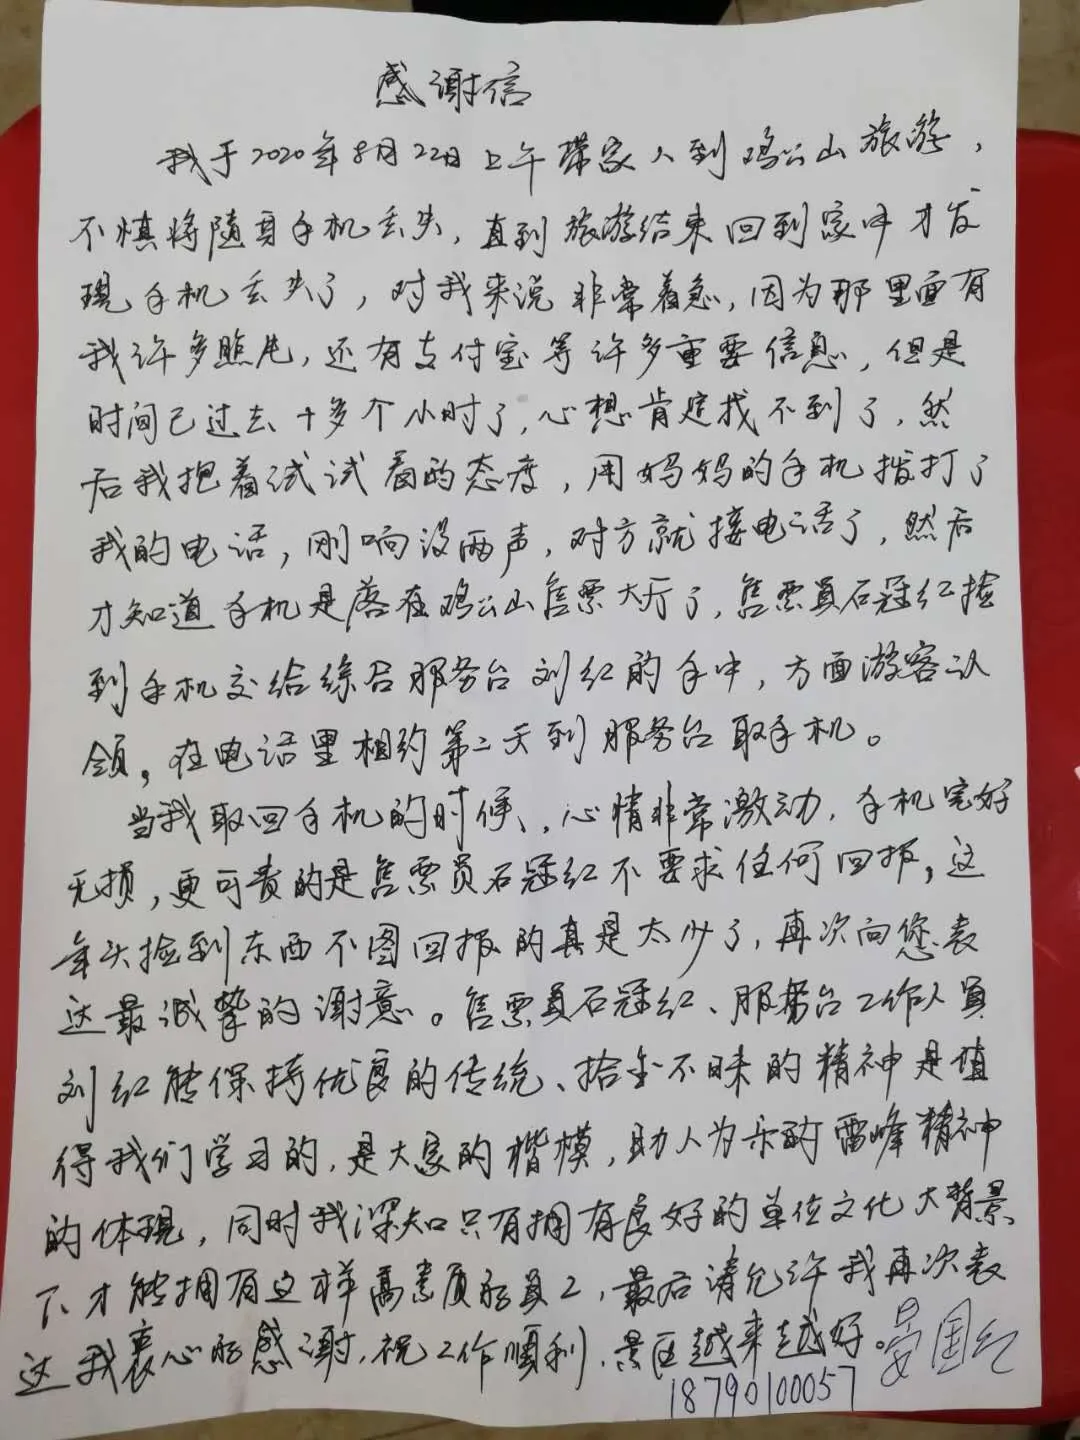 感谢信
我于2020年8月22日上午带家人到鸡公山旅游，
不慎将随身手机丢失，直到旅游结束回到家中才发
现手机丢失了，对我来说非常着急，因为那里面有
我许多照片，还有支付宝等许多重要信息，但是
时间已过去十多个小时了，心想肯定找不到了，然
后我抱着试试看的态度，用妈妈的手机拨打了
我的电话，刚响没两声，对方就接电话了，然后
才知道手机是落在鸡公山售票大厅了，售票员石冠红捡
到手机交给综合服务台刘红的手中，方面游客认
领，在电话里相约第二天到服务台取手机。
当我取回手机的时候，心情非常激动，手机完好
无损，更可贵的是售票员石冠红不要求任何回报，这
年头捡到东西不图回报的真是太少了，再次向您表
达最诚挚的谢意。售票员石冠红、服务台工作人员
刘红能保持优良的传统、拾金不昧的精神是值
得我们学习的，是大家的楷模，助人为乐的雷峰精神
的体现，同时我深知只有拥有良好的单位文化大背景
下才能拥有这样高素质的员工，最后请允许我再次表
达我衷心的感谢，祝工作顺利，景区越来越好。晏国红
18790100057